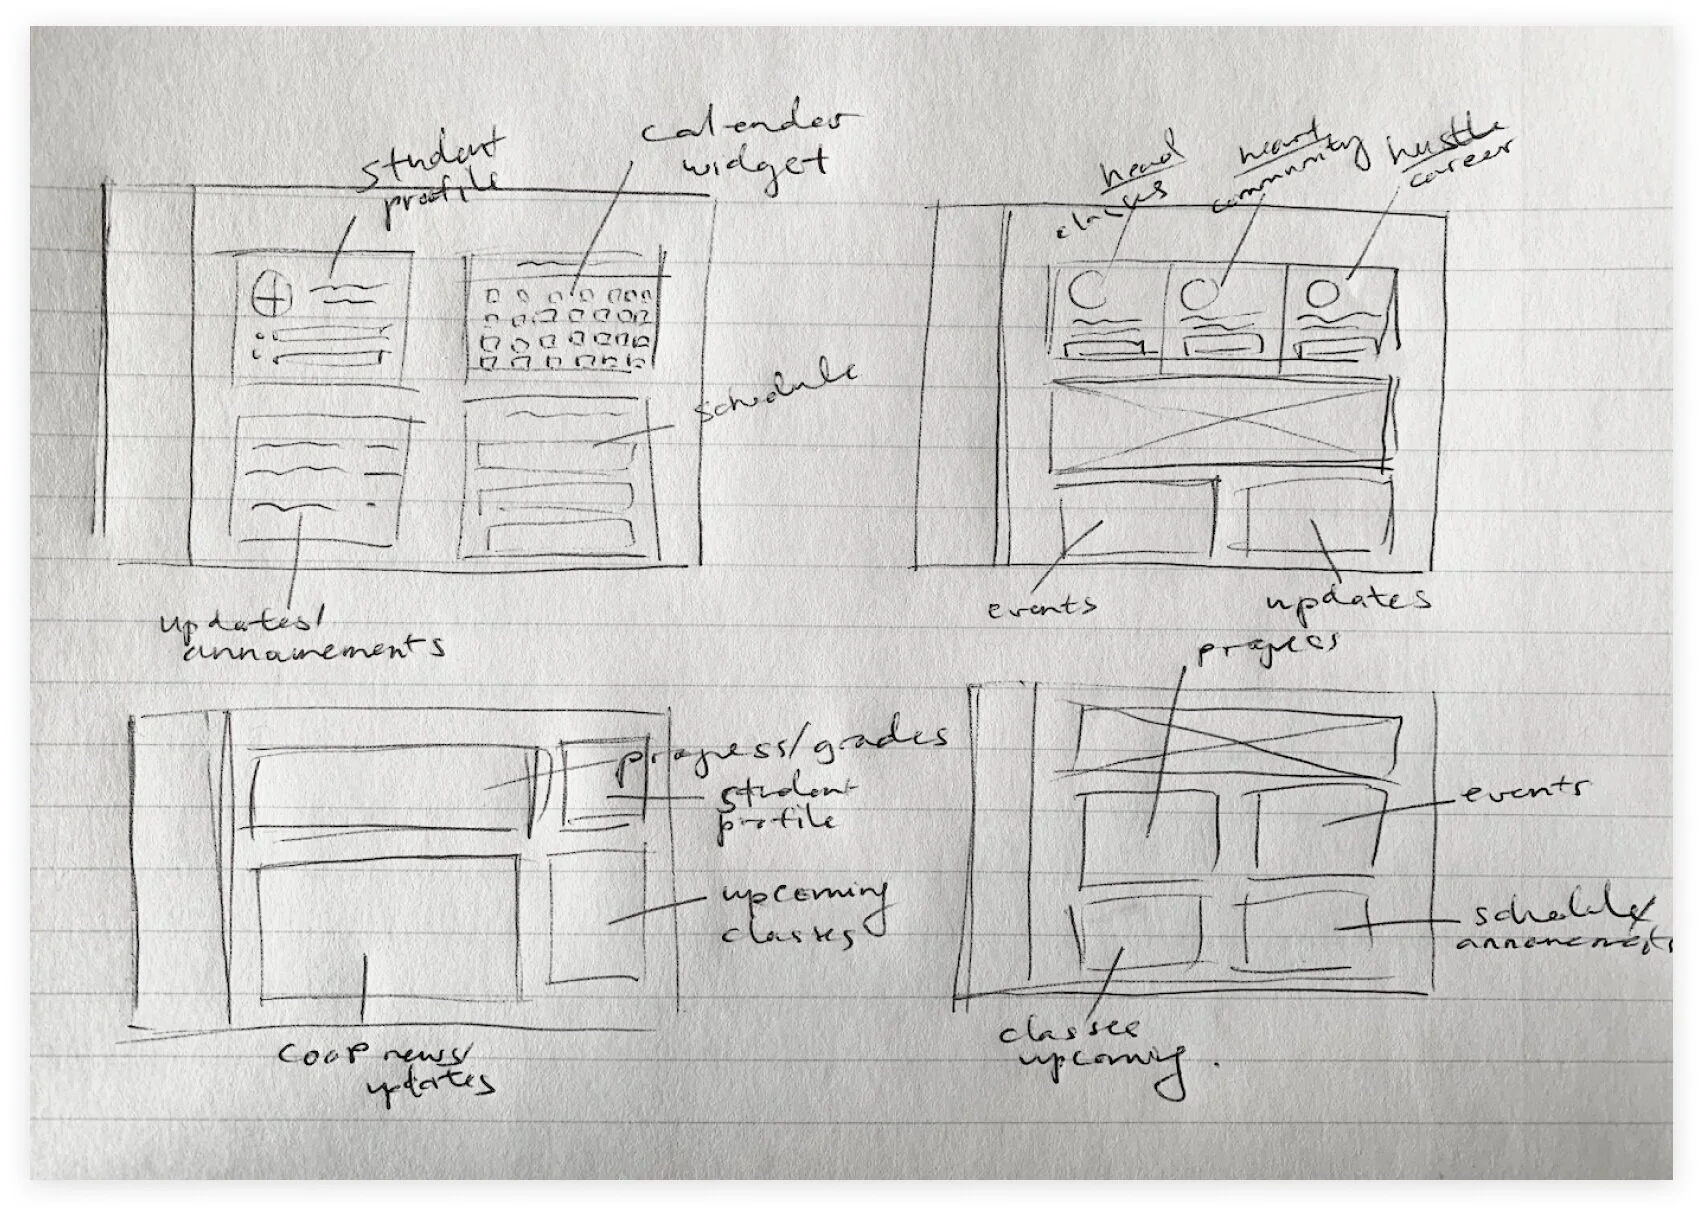 student
profile
calender
widget
schedule
updates/
annoucements
head
classes
heart
community
hustle
career
events
updates
progress/grades
student
profile
upcoming
classes
coop news/
updates
progress
events
schedule/
classes
upcoming.